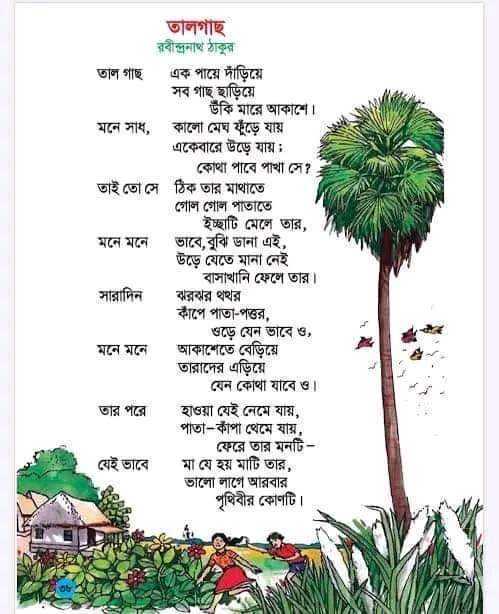 তালগাছ
রবীন্দ্রনাথ ঠাকুর
তাল গাছ এক পায়ে দাঁড়িয়ে
সব গাছ ছাড়িয়ে
উঁকি মারে আকাশে।
মনে সাধ, কালো মেঘ ফুঁড়ে যায়
একেবারে উড়ে যায়;
কোথা পাবে পাখা সে?
তাই তো সে ঠিক তার মাথাতে
গোল গোল পাতাতে
ইচ্ছাটি মেলে তার,
মনে মনে ভাবে, বুঝি ডানা এই,
উড়ে যেতে মানা নেই
বাসাখানি ফেলে তার।
সারাদিন ঝরঝর থথর
কাঁপে পাতা-পত্তর,
ওড়ে যেন ভাবে ও,
মনে মনে আকাশেতে বেড়িয়ে
তারাদের এড়িয়ে
যেন কোথা যাবে ও।
তার পরে হাওয়া যেই নেমে যায়,
পাতা-কাঁপা থেমে যায়,
ফেরে তার মনটি -
যেই ভাবে মা যে হয় মাটি তার,
ভালো লাগে আরবার
পৃথিবীর কোণটি।
৩৮